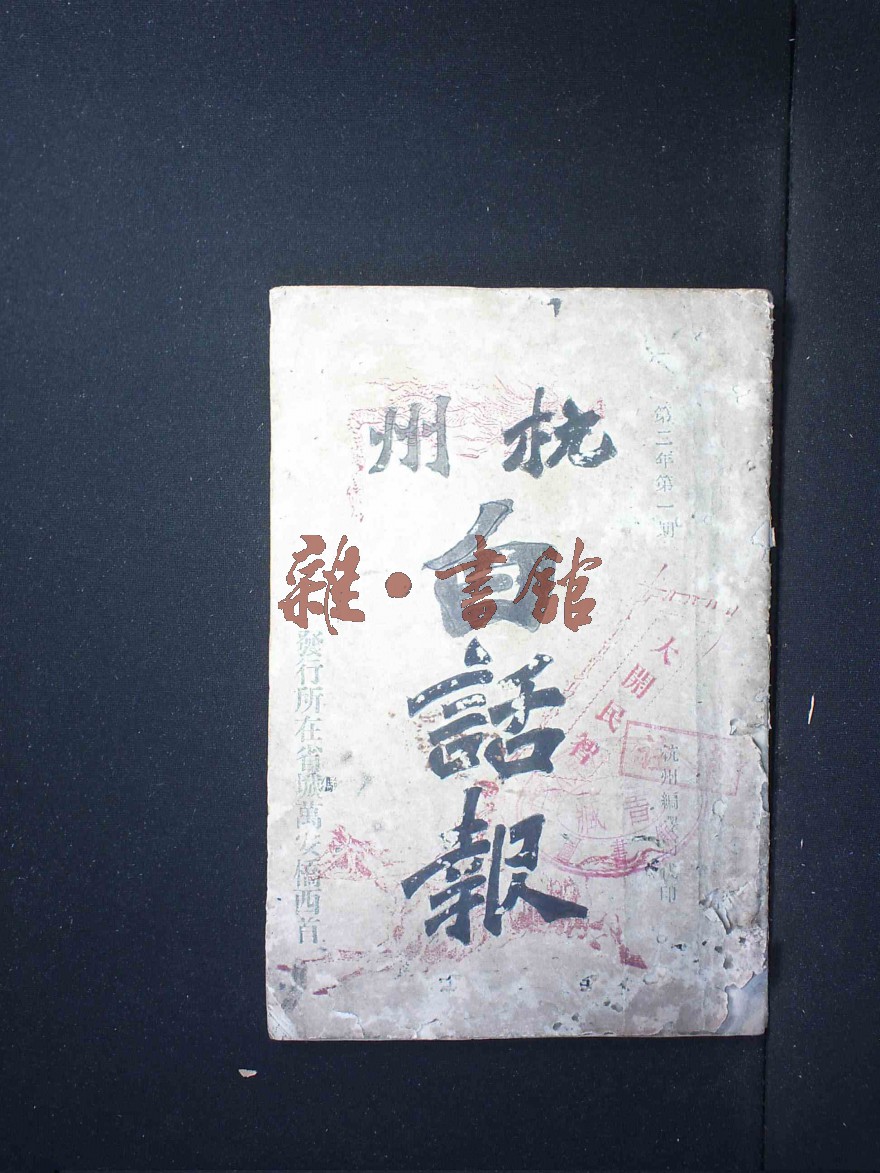 第三年第一期
杭州編譯局印
杭州
白話報
發行所在省城萬安橋西首
大開民智
雜·書館